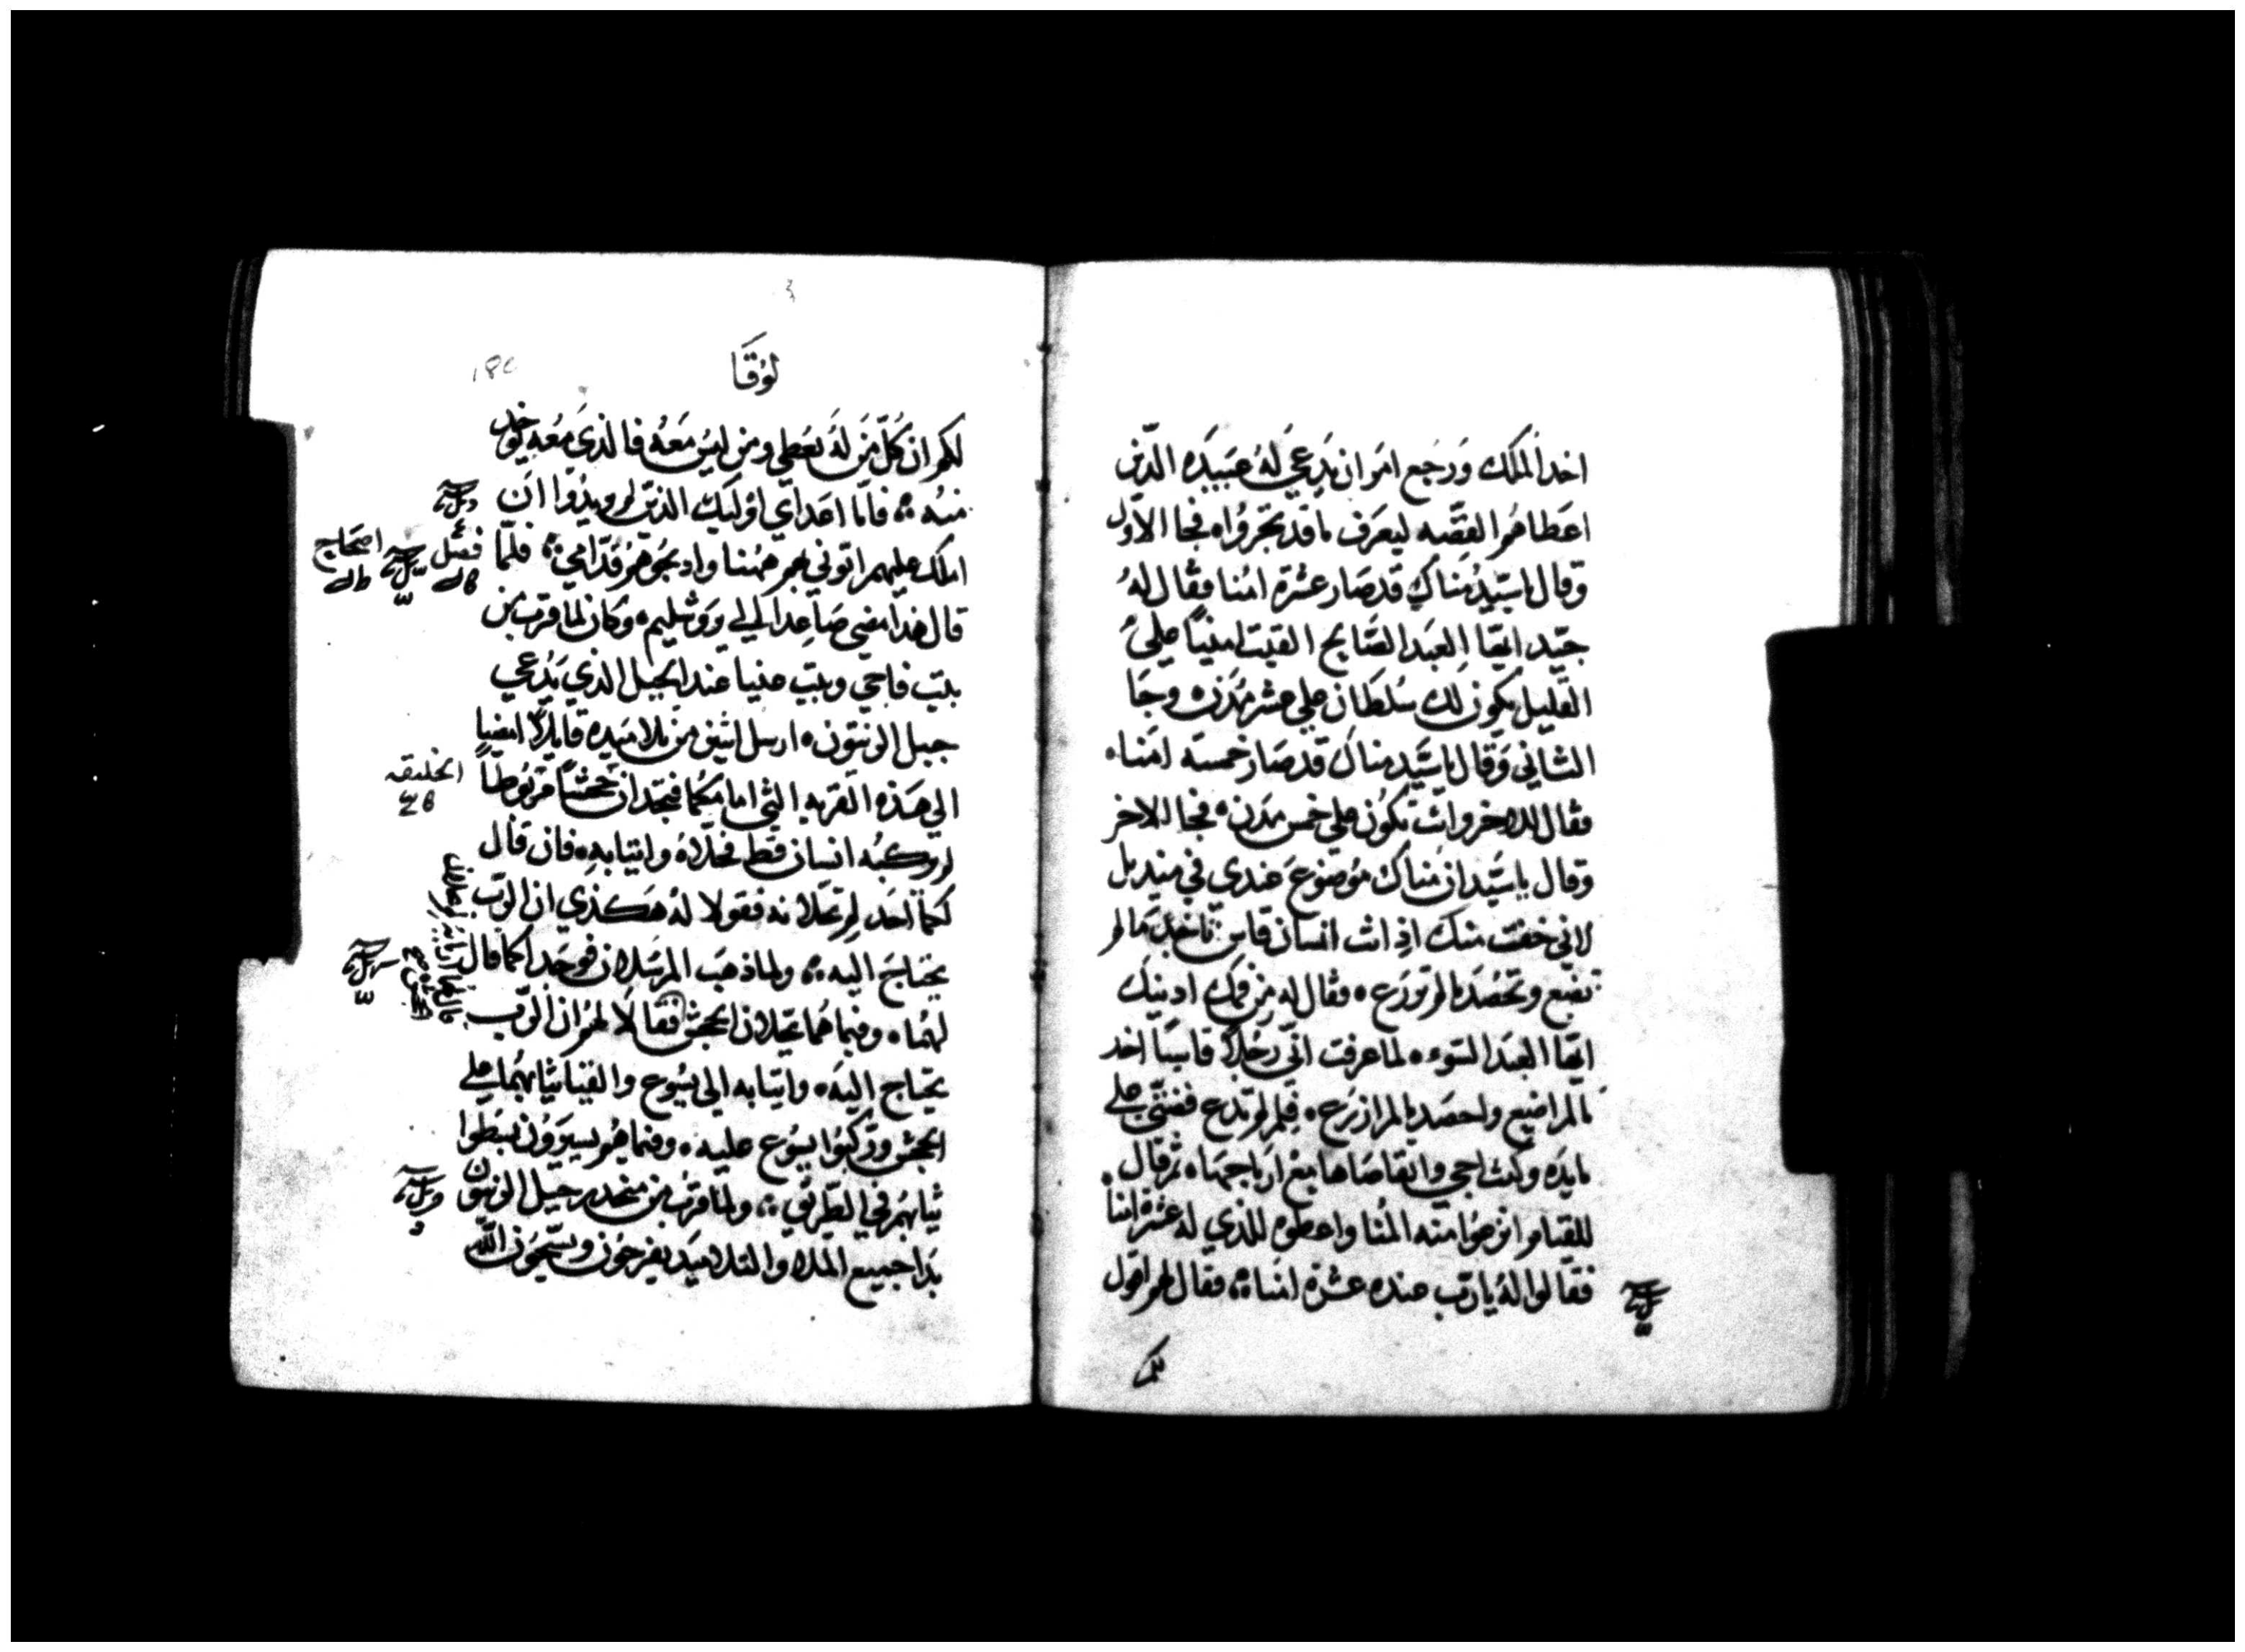 اخد الملك وَرَجَع امَر ان يَدعي لهُ عبَيدَه الذين
اعَطاهُم الفِضّه ليعَرف ما قد تجَروُا ه فجا الاول
وَقال يا سَيّدُ مَناك قد صَار عشرة امُنا فقال لهُ
جيّد ايّها العبَد الصَالح القيت امينًا علي
القليل يكون لك سُلطَان علي عشر مُدَن ه وجَا
الثاني وَقال يا سَيّد مناك قد صَار خمسَه امَناء
فقال للاخر وانت تكوُن علي خمس مدَن ه فجا الاخر
وقال يا سَيّد ان مَناك موُضوُع عَندي في منِديل
لاني خفت منك اذِ انت انسان قاسِ تاخد مَا لم
تضَع وتحصُد ما لم تزرَع ه فقال له مِن فمك ادينك
ايّها العبَد السَوء ه لما عرفت اني رجُلاً قاسيًا اخد
مالم اضَع واحصَد مالم ازرَع ه فلِم لم تدع فضتي علي
مايدَه وكنت اجي واتقاضَاها مع ارباحهَا ه ثم قال
للقيام انزعوُا منه المُنا واعطوه للذي له عشرة امنا
فقالوا لهُ يا رَب عنده عشرة امنَا ه فقال لهم اقول
لكم
لوُقَا
لكم ان كُلّ مَن لهُ يعُطي ومَن ليسُ مَعهُ فالذي مَعُه يوخد
منهُ ه فامّا اعدَاي اوُليك الذين لم يريدُوا ان
املك عليهم اتوني بهم ههُنا واذبحُوهمُ قدّامي ه فلمّا
فصَل
اصحَاح
قال هذا مضي صَاعِداً الي يروشليم ه وكان لما قربَ من
بيت فاجي وبيت عنيا عند الجبل الذي يدُعي
جبل الزيتون ه ارسل اثنين من تلاميَده قايلاً امضيا
الخليقه
الي هَذه القريه التي امامكما فتجدَان جحَشًا مربُوطًا
لم يركبُه انسان قط فحلاهُ وايتيا بهِ ه فان قال
لكما احَد لِم تحلانه فقولا لهُ هَكذي ان الرّب
يحتاجَ اليه ه ولما ذهبَ المرسَلان فوجَدا كما قال
لهُما ه وفيما هُما يحَلان الجحش فقالا لهم ان الرّب
يحتاج اليه ه واتيا به الي يسُوع والقيا ثيابهُما علي
الجحش وركبوُا يسوُع عليه ه وفيما هُم يسيروُن بسَطوا
ثيابهم في الطريق ه ولما قربُ من منحدر جبل الزيتون
بدَا جميع الملا والتلاميَد يفرحُون ويسبّحوُن الله